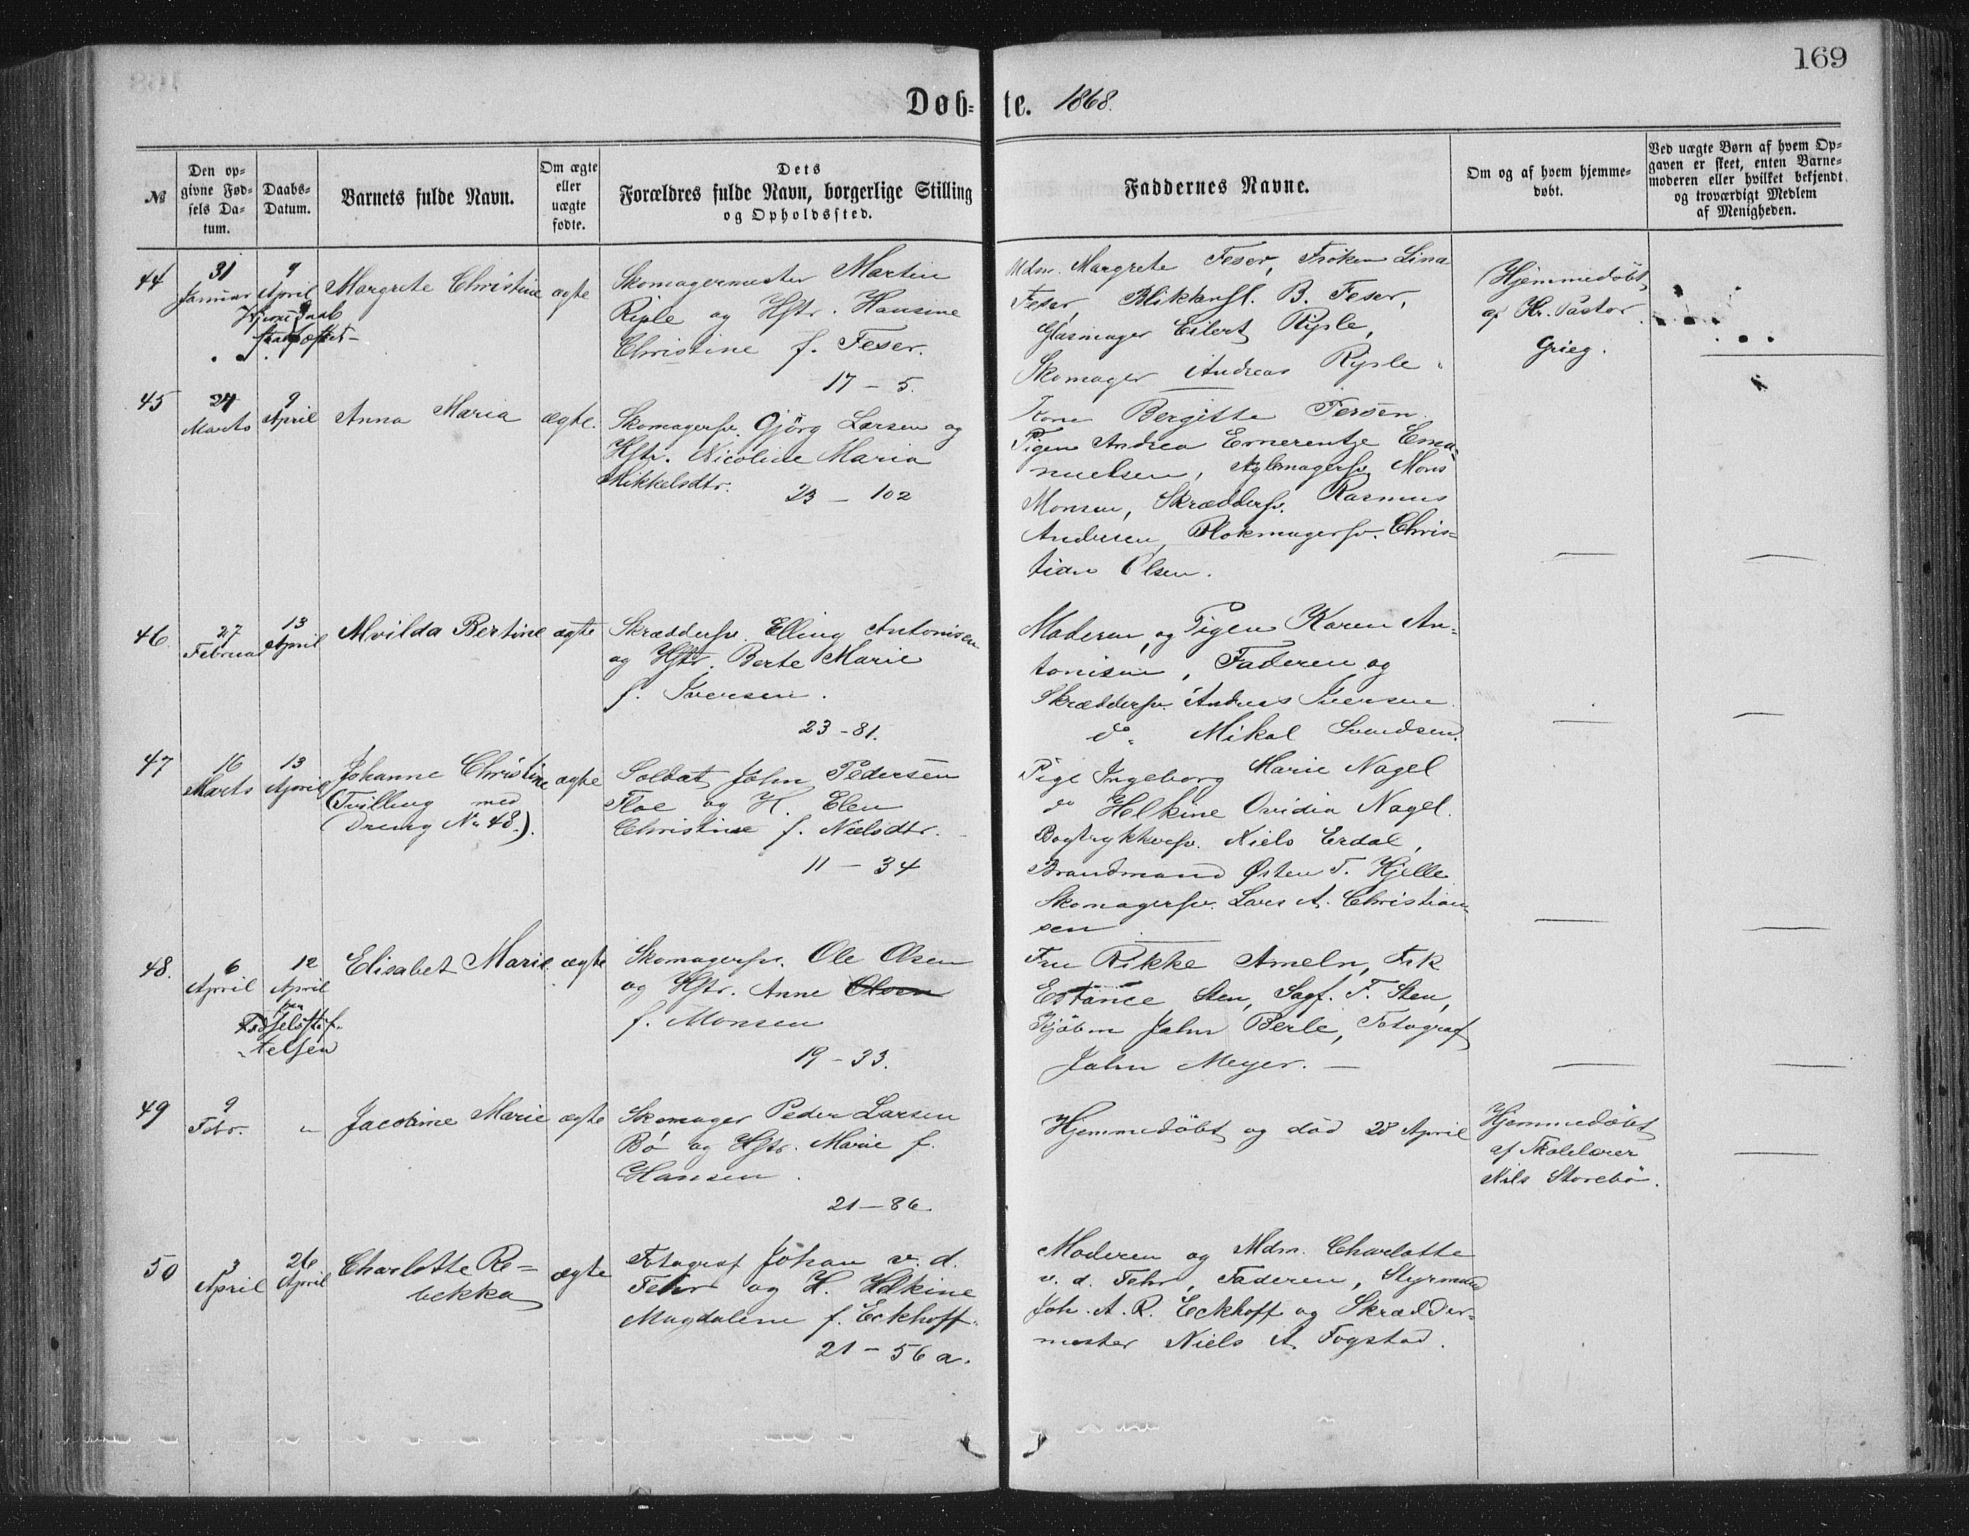 169
Døb=te. 1868.
№
Den op=
givne Fød=
sels Da=
tum.
Daabs=
Datum.
Barnets fulde Navn.
Om ægte
eller
uægte
fødte.
Dets
Forældres fulde Navn, borgerlige Stilling
og Opholdssted.
Faddernes Navne.
Om og af hvem hjemme=
døbt.
Ved uægte Børn af hvem Op=
gaven er skeet, enten Barne=
moderen eller hvilket bekjendt
og troværdigt Medlem
af Menigheden.
44
31
Januar
9
April
Hjemmedaab
stadfæstet
Margrete Christine
ægte
Skomagermester Martin
Riple og Hstr. Hansine
Christine f. Feser.
17 – 5.
Mdm. Margrete Feser, Frøken Lina
Feser, Blikkensl. B. Feser,
Glasmager Eilert Riple,
Skomager Andreas Riple
Hjemmedøbt
af Hr. Pastor
Grieg.
45
24
Marts
9
April
Anna Maria
ægte.
Skomagersv. Gjörg Larsen og
Hstr. Nicoline Maria
Mikkelsdtr.
23 – 102
Kone Bergitte Fersen
Pigen Andrea Emerentze Ema=
nuelsen, Mons
Monsen, Skræddersv. Rasmus
Andersen, Blokmagersv. Chris=
tian Olsen.
46.
27
Februar
13
April
Alvilda Bertine
ægte
Skræddersv. Elling Antonisen
og Hstr. Berte Marie
f. Iversen.
23 – 81.
Moderen, og Pigen Karen An=
tonisen, Faderen og
Skræddersv. Andreas Iversen
do Mikal Svendsen.
47
16
Marts
13
April
Johanne Christine
(Tvilling med
Dreng No 48.).
ægte
Soldat John Pedersen
Floe og H. Elen
Christine f. Nielsdtr.
11 – 34
Pige Ingeborg Marie Nagel
do Helkine Ovidia Nagel.
Bogtrykkersv. Niels Erdal,
Brandmand Østen T. Hjelle
Skomagersv. Lars A. Christian=
sen
48.
6
April
12
April
paa
Fødselsstif=
telsen
Elisabet Marie
ægte
Skomagersv. Ole Olsen
og Hstr. Anne Olsen
f. Monsen
19 – 33.
Fru Rikke Ameln, Frk
Estance Sten, Sagf. F. Sten,
Kjøbm John Berle, Fotograf
John Meyer.
49
9
Febr.
"
Jacobine Marie
ægte
Skomager Peder Larsen
Bö og Hstr. Marie f.
Hansen
21 – 86.
Hjemmedøbt og død 28 April
Hjemmedøbt
af Skolelærer
Nils Storebö.
50
3
April
26
April
Charlotte Re=
bekka
ægte
Fotograf Johan v. d.
Fehr og H. Helkine
Magdalene f. Eckhoff.
21 – 56 a.
Moderen og Mdm. Charlotte
v. d. Fehr, Faderen, Styrmand
Joh. A. R. Eckhoff og Skrædder=
mester Niels A. Fogstad.